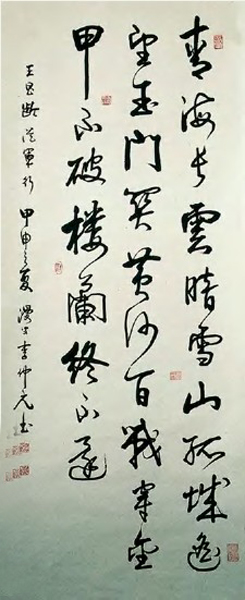 青海長雲暗雪山孤城遙
望玉門関黄沙百戰穿金
甲不破樓蘭終不還
王昌齡從軍行 甲申之夏 李仲元書